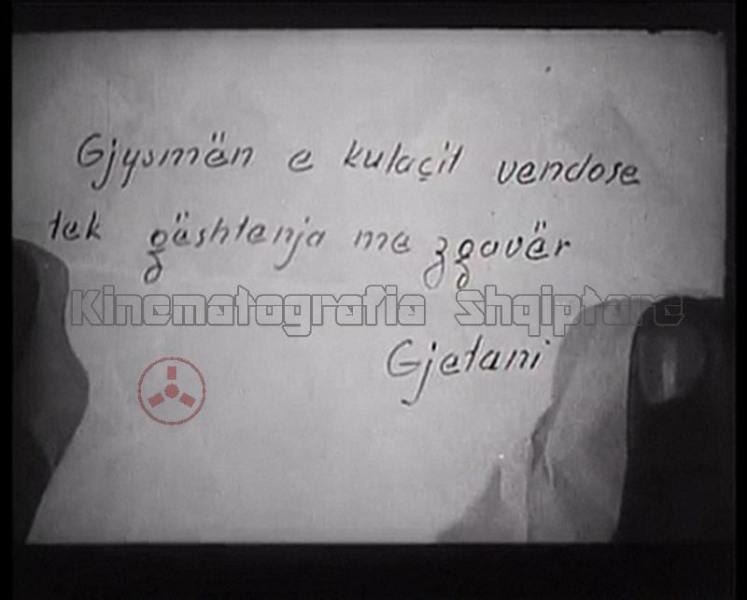 Gjysmën e kulaçit vendose
tek gështenja me zgavër
Kinematografia Shqiptare
Gjetani